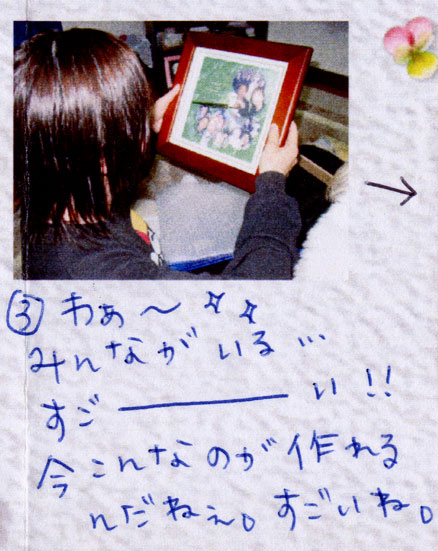 ③ わぁ〜☆☆
みんながいる…
すご――――い!!
今こんなのが作れる
んだねぇ。すごいね。